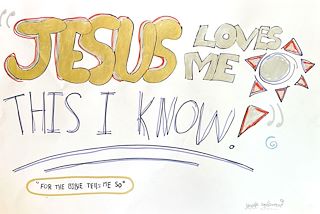 "JESUS LOVES
ME
THIS I KNOW!"
"FOR THE BIBLE TELLS ME SO"